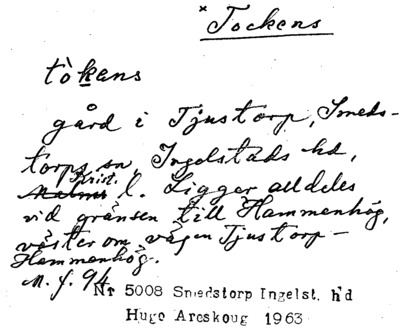 × Tockens
tòkens
gård i Tjustorp, Smeds-
torps sn, Ingelstads hd,
Krist.
Malmö l. Ligger alldeles
vid gränsen till Hammenhög,
väster om vägen Tjustorp –
Hammenhög.
M. f. 94
Nr 5008 Smedstorp Ingelst. hd
Hugo Areskoug 1963